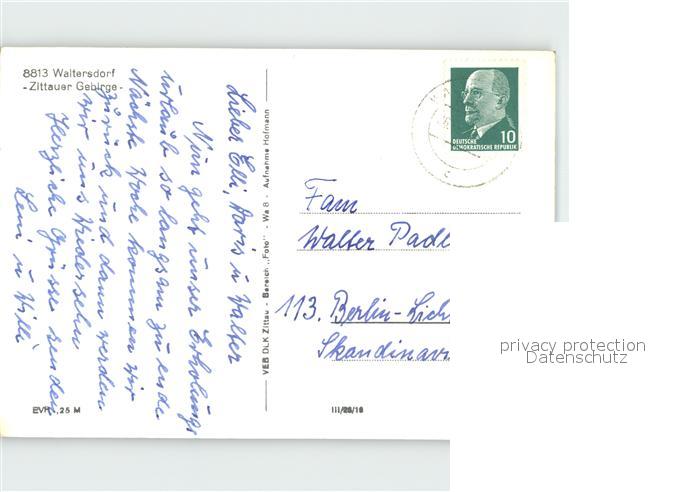 8813 Waltersdorf
- Zittauer Gebirge -
Lieber Elli, Haris u Walter
Nun geht unser Erholungs
urlaub so langsam zu ende
Nächste Woche kommen wir
zurück und dann werden
wir uns Wiedersehn
Herzliche Grüsse senden
Leni u Willi
EVP ,25 M
VEB DLK Zittau - Bereich „Foto" - Wa 8 - Aufnahme Hofmann
10
DEUTSCHE
DEMOKRATISCHE REPUBLIK
Fam
Walter Padt
113. Berlin-Lich
Skandinav
III/26/16
privacy protection
Datenschutz